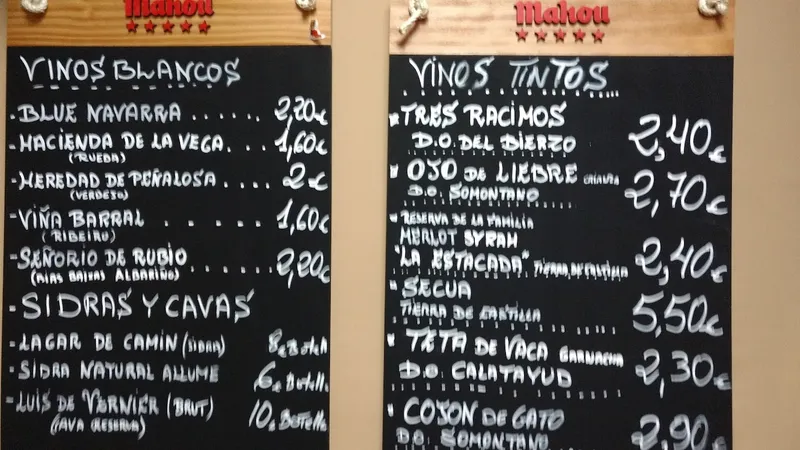 Mahou
VINOS BLANCOS
- BLUE NAVARRA ...... 2,20€
- HACIENDA DE LA VEGA... 1,60€
(RUEDA)
- HEREDAD DE PEÑALOSA .... 2€
(VERDEJO)
- VIÑA BARRAL ....... 1,60€
(RIBEIRO)
- SEÑORIO DE RUBIO ..... 2,20€
(RIAS BAIXAS ALBARIÑO)
- SIDRAS Y CAVAS
- LAGAR DE CAMIN (SIDRA) 8€ Botella
- SIDRA NATURAL ALLUME 6€ Botella
- LUIS DE VERNIER (BRUT) 10€ Botella
(CAVA RESERVA)
Mahou
VINOS TINTOS
TRES RACIMOS
D.O. DEL BIERZO 2,40€
OJO DE LIEBRE CRIANZA
D.O. SOMONTANO 2,70€
RESERVA DE LA FAMILIA
MERLOT SYRAH
"LA ESTACADA" TIERRA DE CASTILLA 2,40€
SECUA
TIERRA DE CASTILLA 5,50€
TETA DE VACA GARNACHA
D.O. CALATAYUD 2,30€
COJON DE GATO
D.O. SOMONTANO 2,90€